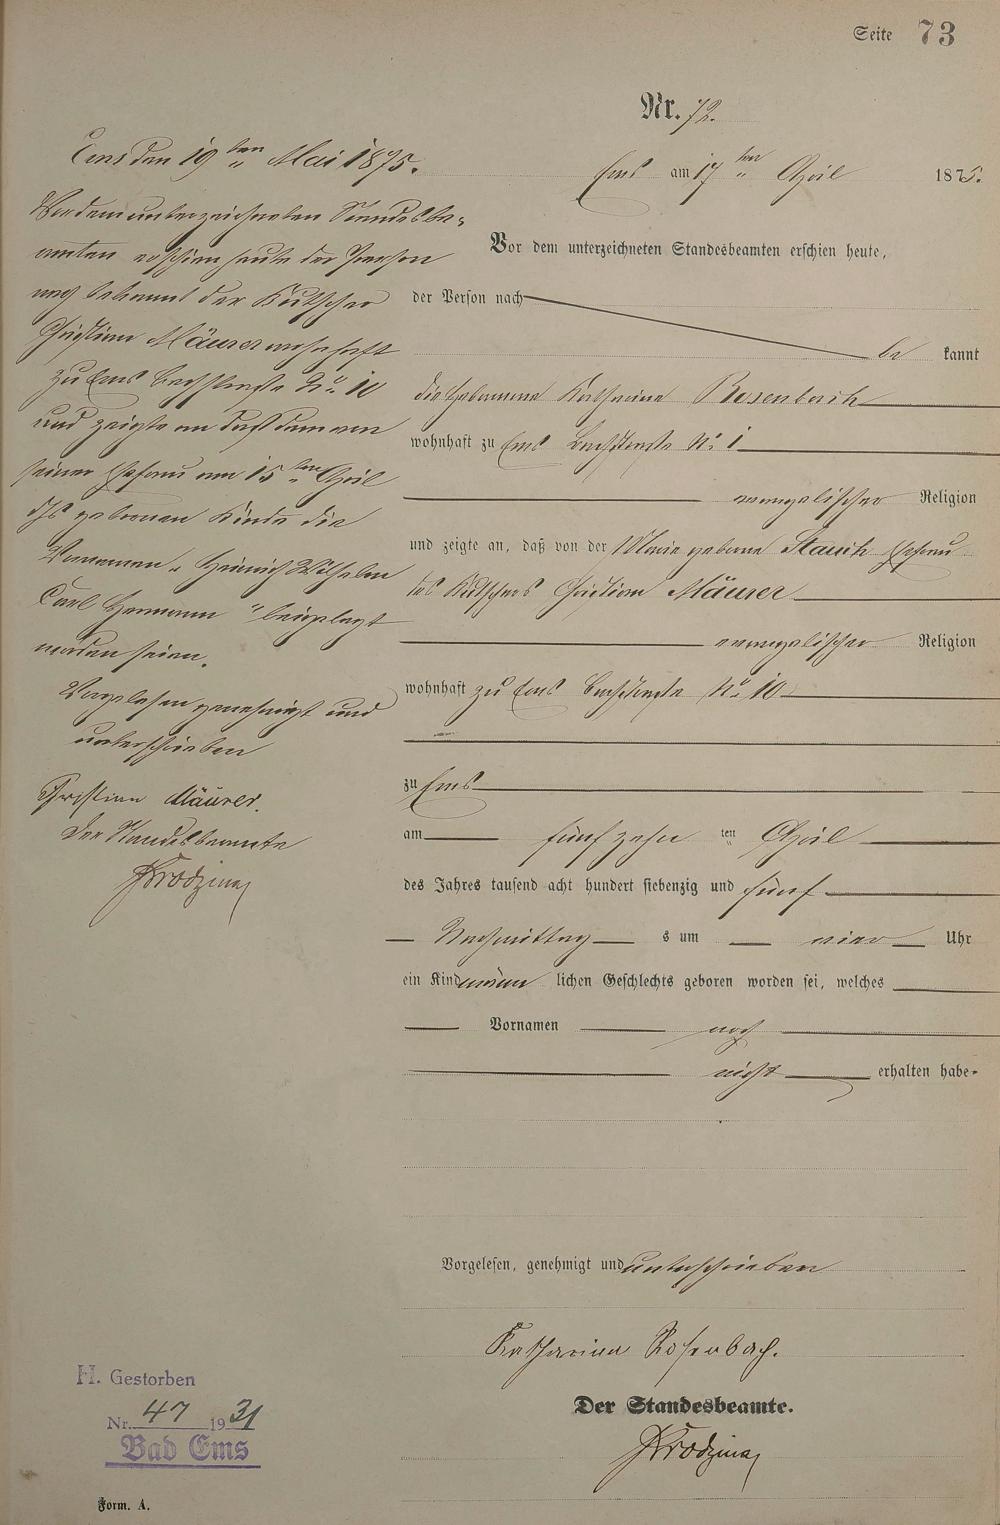 Seite 73
Nr. 72.
Ems am 17ten April 1875.
Vor dem unterzeichneten Standesbeamten erschien heute,
der Person nach
be kannt
die Hebamme Katharine Rosenbach
wohnhaft zu Ems Bachstraße No. 1
evangelischer Religion
und zeigte an, daß von der Marie geborne Stauch Ehefrau
des Kutschers Christian Mäurer
evangelischer Religion
wohnhaft zu Ems Bachstraße No. 10
zu Ems
am fünfzehn ten April
des Jahres tausend acht hundert siebenzig und fünf
Nachmittag s um vier Uhr
ein Kind männ lichen Geschlechts geboren worden sei, welches
Vornamen noch
nicht erhalten habe.
Vorgelesen, genehmigt und unterschrieben
Katharina Rosenbach.
Der Standesbeamte.
Ems den 19ten Mai 1875.
Vor dem unterzeichneten Standesbe-
amten erschien heute der Person
nach bekannt der Kutscher
Christian Mäurer wohnhaft
zu Ems Bachstraße No. 10
und zeigte an daß dem von
seiner Ehefrau am 15ten April
ds Js gebornen Kinde die
Vornamen „Heinrich Wilhelm
Carl Hermann“ beigelegt
worden seien.
Vorgelesen genehmigt und
unterschrieben
Christian Mäurer.
Der Standesbeamte
H. Gestorben
Nr. 47 1931
Bad Ems
Form. A.